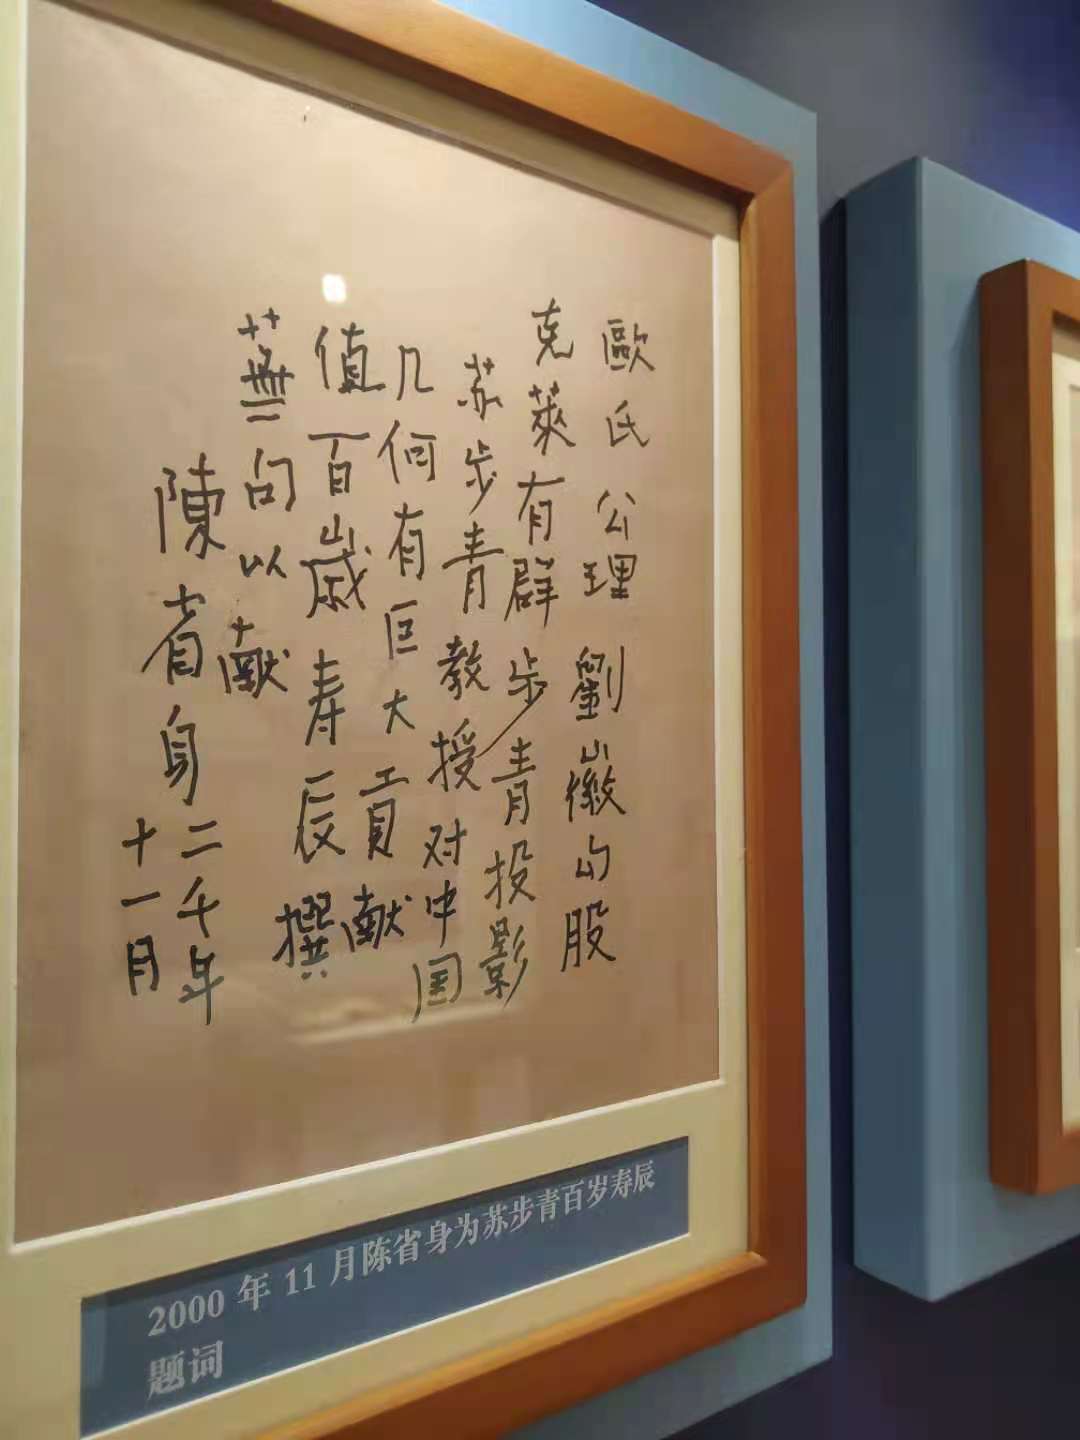 歐氏公理劉徽勾股
克萊有群步青投影
苏步青教授对中国
几何有巨大貢献
值百歲寿辰撰
蕪句以献
陳省身二千年
十一月
2000 年 11 月陈省身为苏步青百岁寿辰
题词